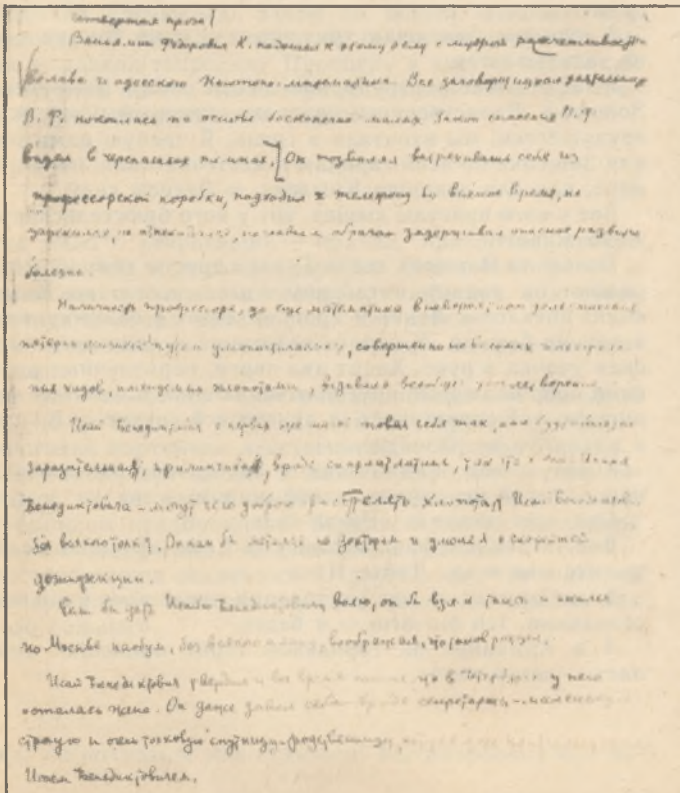 Четвертая проза
Веньямин Федорович К. подошел к этому делу с мудрой расчетливостью
и одесского Ньютона-математика. Вся заговорщицкая деятельность
В. Ф. покоилась на основе бесконечно малых. Закон спасения В. Ф.
видел в черепашьих темпах. Он позволял вытряхивать себя из
профессорской коробки, подходил к телефону во всякое время, не
зарекался, не отнекивался, но главным образом задерживал опасное развитие
болезни.
Наличность профессора, да еще математика в невероятном деле спасения
пятерых путем умопостигаемых, совершенно невесомых интегральных
ходов, именуемых хлопотами, вызывало всеобщее удовлетворение.
Исай Бенедиктович с первых же шагов повел себя так, как будто болезнь
заразительна, прилипчива, вроде скарлатины, так что и его, Исая
Бенедиктовича – могут чего доброго расстрелять. Хлопотал Исай Бенедиктович
без всякого толку. Он как бы метался по докторам и умолял о скорейшей
дезинфекции.
Если бы дать Исаю Бенедиктовичу волю, он бы взял такси и носился
по Москве наобум, без всякого плана, воображая, что таков ритуал.
Исай Бенедиктович твердил и все время помнил, что в Петербурге у него
осталась жена. Он даже завел себе вроде секретарши – маленькую,
строгую и очень толковую спутницу-родственницу,
Исаем Бенедиктовичем.